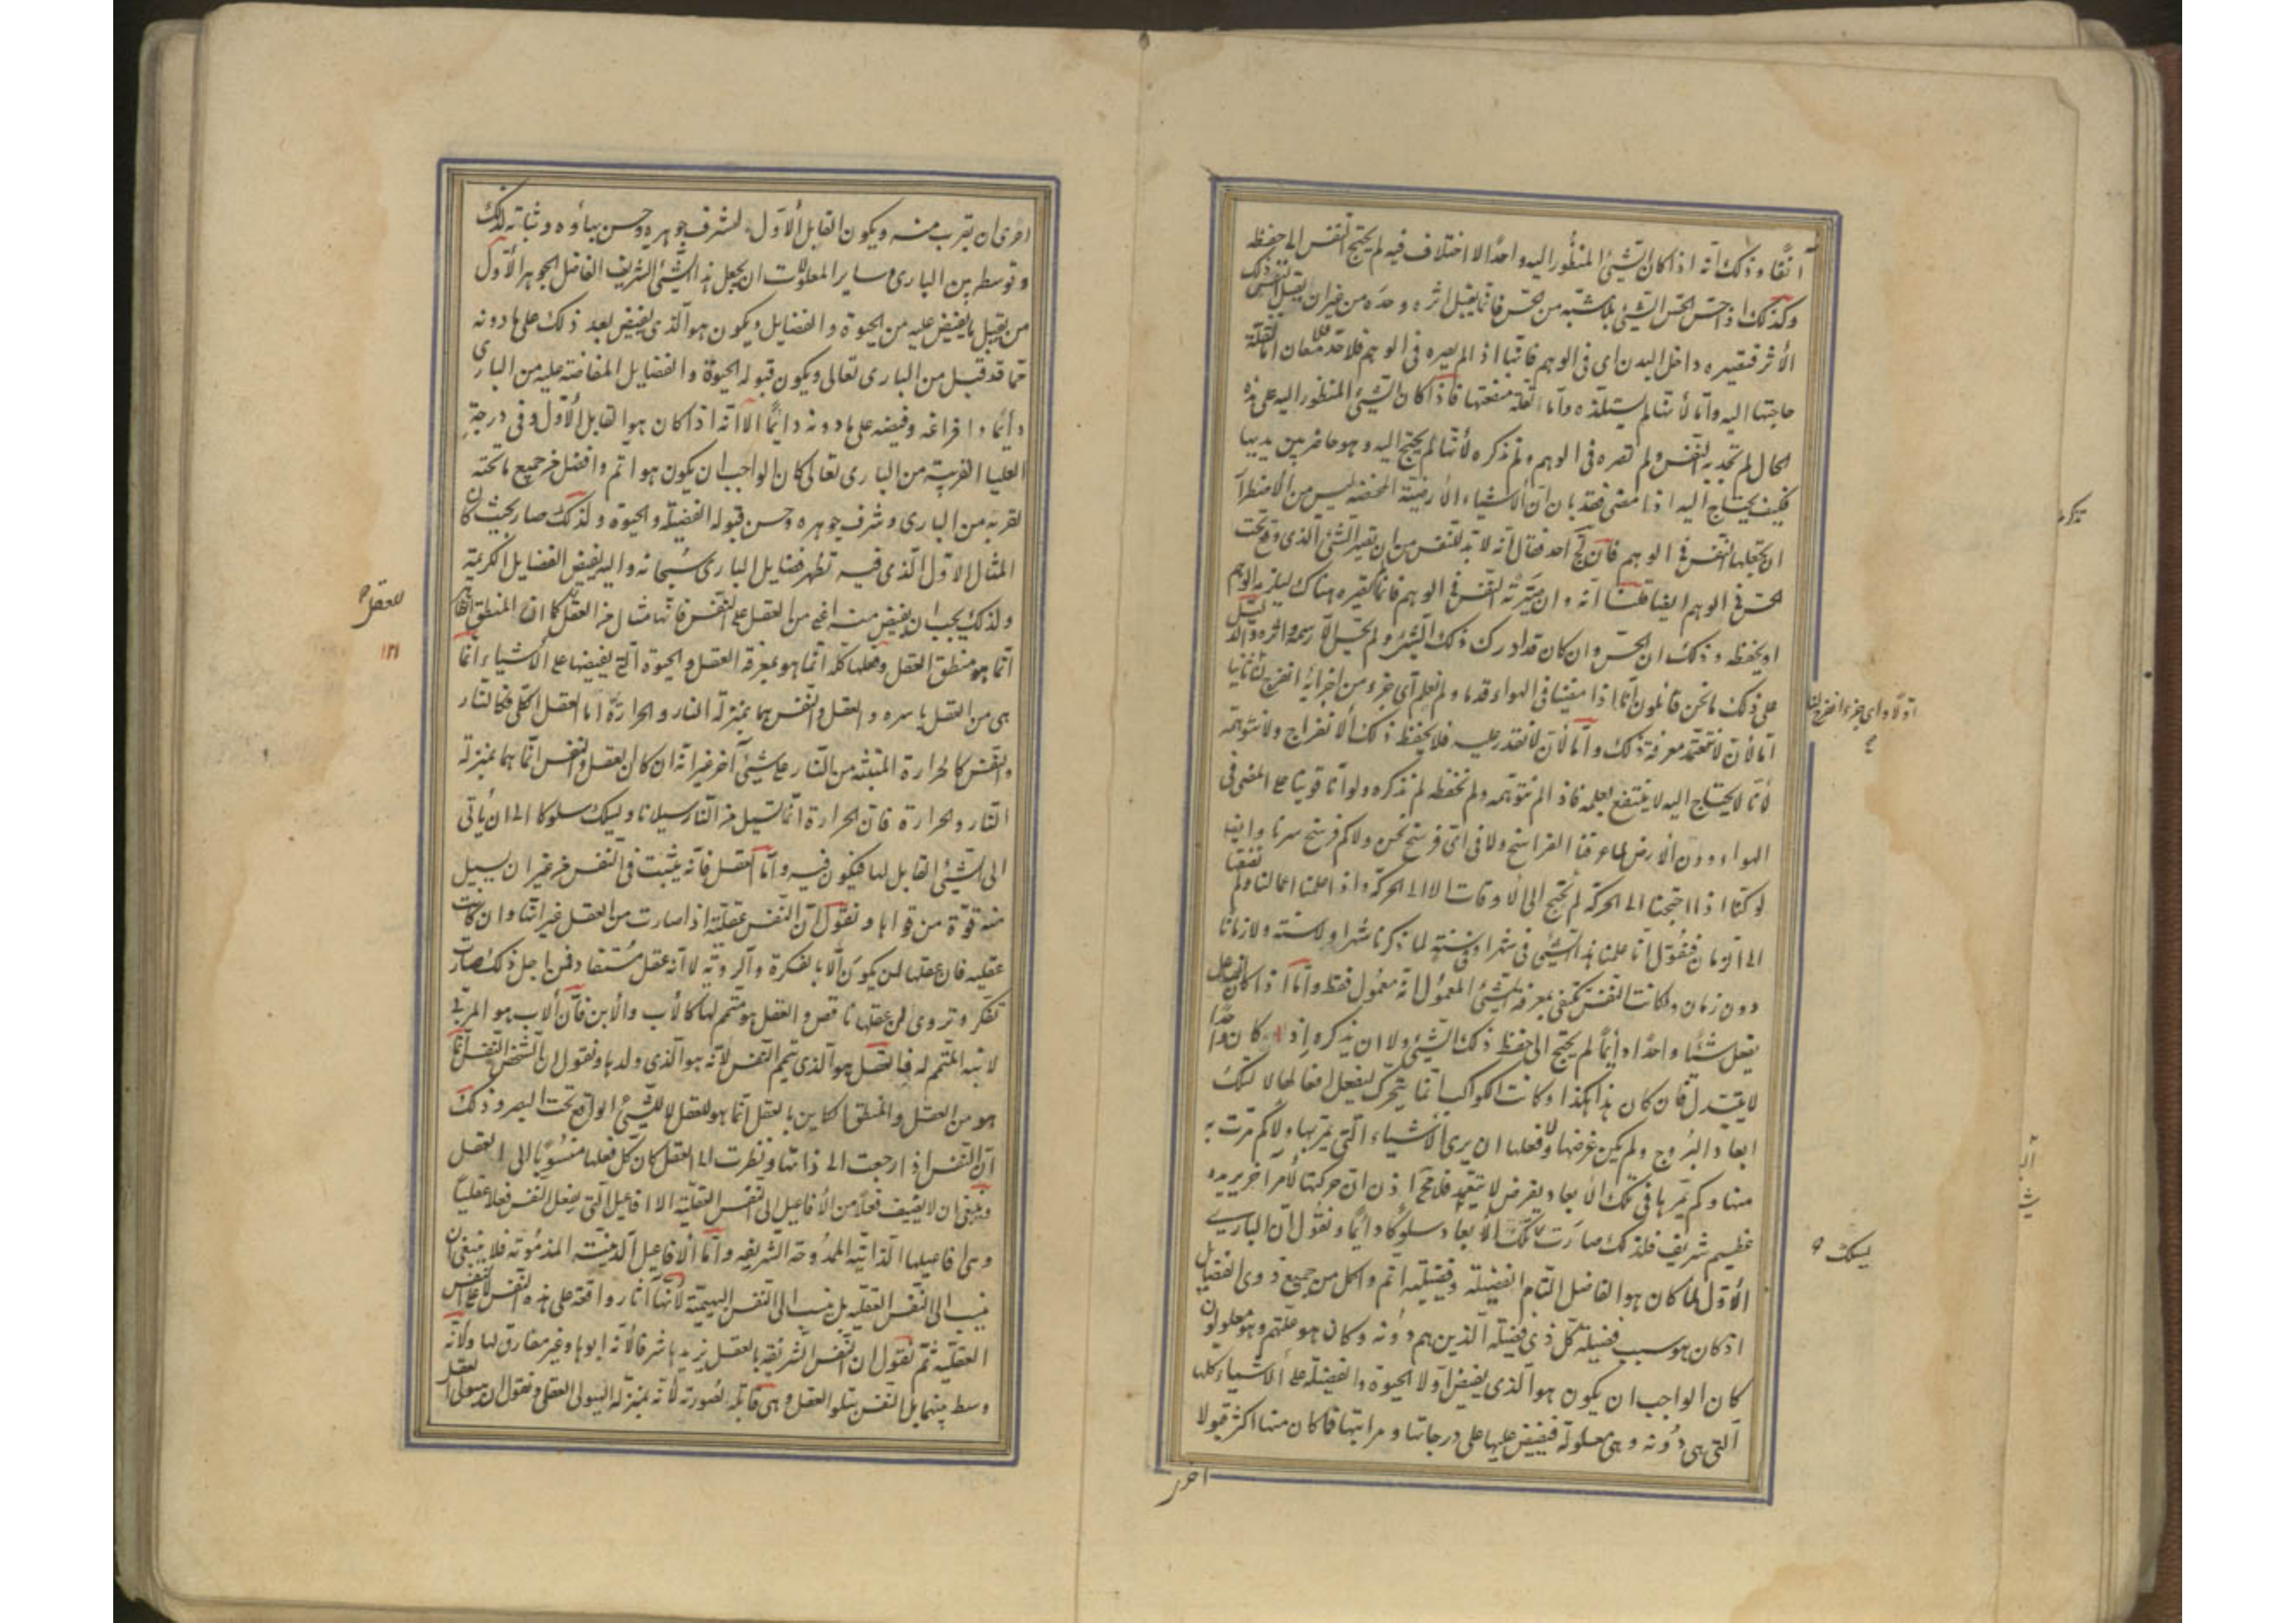 آنفًا وذلك أنه اذا كان الشيئ المنظور اليه واحدًا لا اختلاف فيه لم يحتج النفس الى حفظه
وكذلك اذا حس الحس الشيئ بلا مشبه من الحس فانما يقبل اثره وحده من غير ان يقبل النفس ذلك
الأثر فتصيره داخل البدن اى فى الوهم فانها اذا لم يصره فى الوهم فلاحد معان اما لقلة
حاجتها اليه واما لأنها لم يستلذه واما لقلة منفعتها فاذا كان الشيئ المنظور اليه على هذه
الحال لم تجد به النفس ولم تصره فى الوهم ولم تذكره لأنها لم يحتج اليه وهو حاضر بين يديها
فكيف يحتاج اليه اذا مضى فقد بان ان الأشياء الأرضية المحضة ليس من الأضطرار
ان يجعلها النفس فى الوهم فان لج احد فقال انه لا بد للنفس من ان تصير الشئ الذى وقع تحت
الحس فى الوهم ايضا قلنا انه وان صيرته النفس فى الوهم فانما تصيره هناك ليلزمه الوهم
او يحفظه وذلك ان الحس وان كان قد ادرك ذلك الشيئ ولم يتخيل الا رسمه واثره والدليل
على ذلك ما نحن قائلون انا اذا مشينا فى الهواء قدما ولم نعلم أى جزء من اجزائه انفرج لنا ثانيا
اما لأن لا نتعمد معرفة ذلك واما لأن لا نقدر عليه فلا يحفظ ذلك الانفراج ولا نتوهمه
لأنا لا يحتاج اليه لا ينتفع بعلمه فاذا لم نتوهمه ولم نحفظه لم نذكره ولو انا قوينا على المضى فى
الهواء دون الأرض لما عرفنا الفراسخ ولا فى اى فرسخ نحن ولا كم فرسخ سرنا وايضا
لو كنا اذا احتجنا الى الحركة لم نحتج الى الاوقات الا الى الحركة واذا عملنا اعمالنا ولم نضفها
الى الزمان فنقول انا عملنا هذا الشيئ فى شهر او فى سنة لما ذكرنا شهرا ولا سنة ولا زمانا
دون زمان ولكانت النفس تكتفى بمعرفة الشيئ المعمول انه معمول فقط واما اذا كان الفاعل
يفعل شيئًا واحدًا دائمًا لم يحتج الى حفظ ذلك الشيئ ولا ان يذكره اذ كان واحدًا
لا يتبدل فان كان هذا هكذا وكانت الكواكب انما يتحرك ليفعل افعالها لا ليسلك
ابعاد البروج ولم يكن غرضها ولا فعلها ان يرى الأشياء التى يمر بها ولا كم مرت به
منها وكم تمر بها فى تلك الأبعاد بغرض لا بتعمد فلا محة اذن ان حركتها لأمر آخر يريده
عظيم شريف فلذلك صارت تلك الأبعاد سلوكًا دائمًا ونقول ان البارى
الأول لما كان هو الفاضل التام الفضيلة وفضيلته اتم واكمل من جميع ذوى الفضايل
اذ كان هو سبب فضيلة كل ذى فضيلة الذين هم دونه وكان هو علتهم وهم معلولون
كان الواجب ان يكون هو الذى يفيض اولا الحيوة والفضيلة على الأشياء كلها
التى هى دونه وهى معلولة فيفيض عليها على درجاتها ومراتبها فما كان منها اكثر قبولا
احرى
اولا واى جزء انفرج لنا
يسلك
احرى ان يقرب منه ويكون القابل الأول لشرف جوهره وحسن بهاؤه وثباته لذلك
وتوسطه بين البارى وساير المعلولات ان يجعل هذا الشيئ الشريف الفاضل الجوهر الأول
من يقبل ما يفيض عليه من الحيوة والفضايل ويكون هو الذى يفيض بعد ذلك على ما دونه
مما قد قبل من البارى تعالى ويكون قبوله الحيوة والفضايل المفاضة عليه من البارى
دائمًا وافراغه وفيضه على ما دونه دائمًا الا انه اذا كان هو القابل الأول وفى درجة
العليا القريبة من البارى تعالى كان الواجب ان يكون هو اتم وافضل من جميع ما تحته
لقربه من البارى وشرف جوهره وحسن قبوله الفضيلة والحيوة ولذلك صار بحيث كان
المثال الأول الذى فيه تظهر فضايل البارى سبحانه واليه يفيض الفضايل الكريمة
ولذلك يجب ان يفيض منه اعنى من العقل على النفس فانها مثال من العقل كما ان المنطق الظاهر
انما هو منطق العقل وفعلها كله انما هو بمعرفة العقل والحيوة التى يفيضها على الأشياء انما
هى من العقل باسره والعقل والنفس هما بمنزلة النار والحرارة اما العقل الكلى فكالنار
والنفس كالحرارة المنبثة من النار على شيئ آخر غير انه ان كان العقل والنفس انما هما بمنزلة
النار والحرارة فان الحرارة انما تسيل من النار سيلانا ويسلك سلوكا الى ان يأتى
الى الشيئ القابل لها فيكون فيه واما العقل فانه يثبت فى النفس من غير ان يسيل
منه قوة من قواها ونقول ان النفس عقلية اذا صارت من العقل غير انها وان كانت
عقلية فان عقلها لن يكون الا بالفكرة والروية لا انه عقل مستفاد فمن اجل ذلك صارت
تفكر وتروى لان عقلها ناقص والعقل هو متمم لها كالأب والأبن فان الأب هو المربى
لابنه المتمم له فالعقل هو الذى يتمم النفس لأنه هو الذى ولدها ونقول ان الشخص النفس انما
هو من العقل والمنطق الكاين بالعقل انما هو للعقل لا للشيئ الواقع تحت البصر وذلك
ان النفس اذا رجعت الى ذاتها ونظرت الى العقل كان كل فعلها منسوبًا الى العقل
وينبغى ان لا يضيف فعلًا من الأفاعيل الى النفس العقلية الا الافاعيل التى يفعل النفس فعلا عقليًا
وهى افاعيلها الذاتية الممدوحة الشريفه واما الأفاعيل الدنيئة المذمومة فلا ينبغى ان
ينسب الى النفس العقليه بل ينسب الى النفس البهيمية لأنها آثار واقعة على هذه النفس لا على النفس
العقلية ثم نقول ان النفس الشريفة بالعقل يزيدها شرفا لأنه ابوها وغير مفارق لها ولأنه لا
وسط بينهما بل النفس يتلو العقل وهى قابلة لصورته لأنه بمنزلة الهيولى العقل ونقول ان هيولى العقل
للعقل